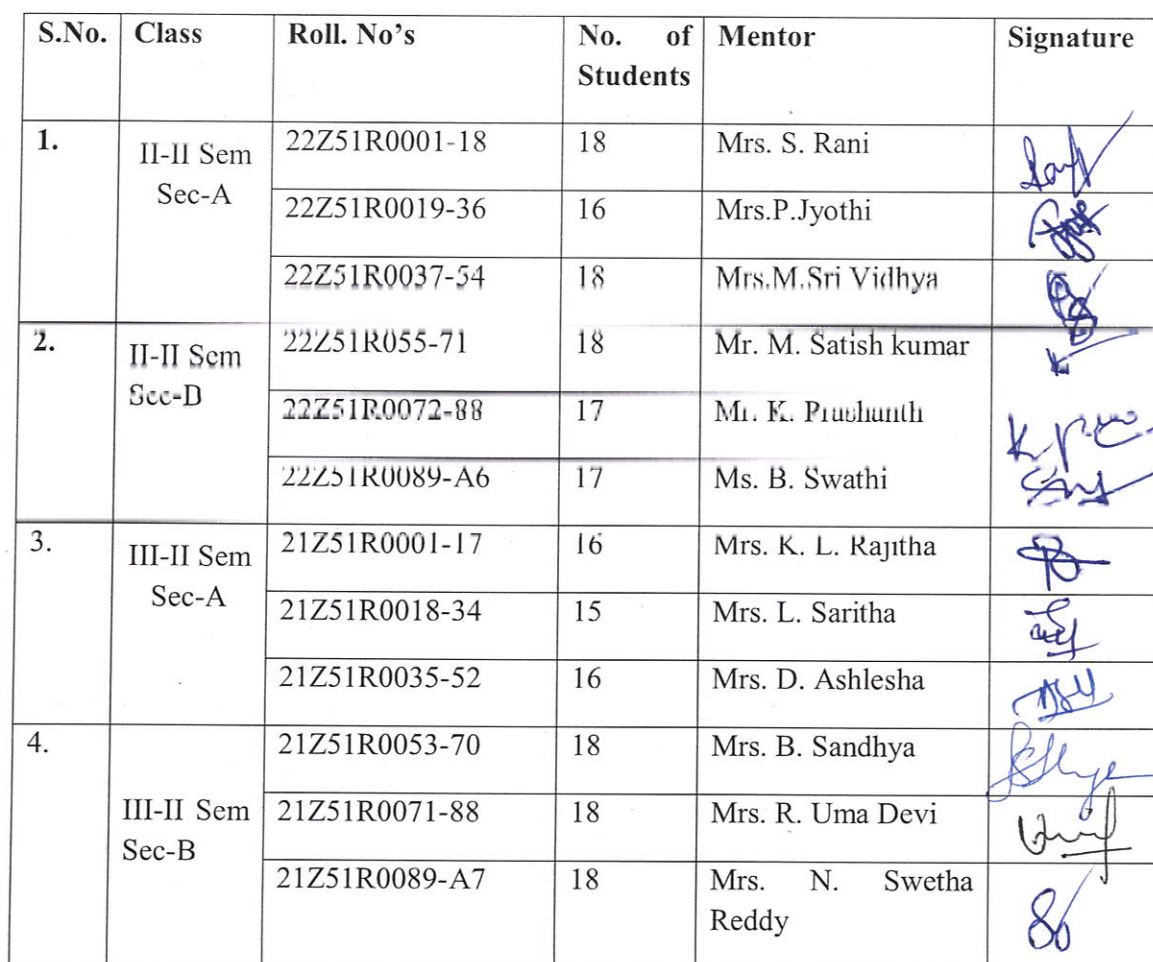 S.No. Class Roll. No's No. of Mentor Signature
Students
1. II-II Sem 22Z51R0001-18 18 Mrs. S. Rani
Sec-A
22Z51R0019-36 16 Mrs.P.Jyothi
22Z51R0037-54 18 Mrs.M.Sri Vidhya
2. II-II Sem 22Z51R055-71 18 Mr. M. Satish kumar
Sec-D
22Z51R0072-88 17 Mr. K. Prashanth
22Z51R0089-A6 17 Ms. B. Swathi
3. III-II Sem 21Z51R0001-17 16 Mrs. K. L. Rajitha
Sec-A
21Z51R0018-34 15 Mrs. L. Saritha
21Z51R0035-52 16 Mrs. D. Ashlesha
4. 21Z51R0053-70 18 Mrs. B. Sandhya
III-II Sem 21Z51R0071-88 18 Mrs. R. Uma Devi
Sec-B
21Z51R0089-A7 18 Mrs. N. Swetha
Reddy